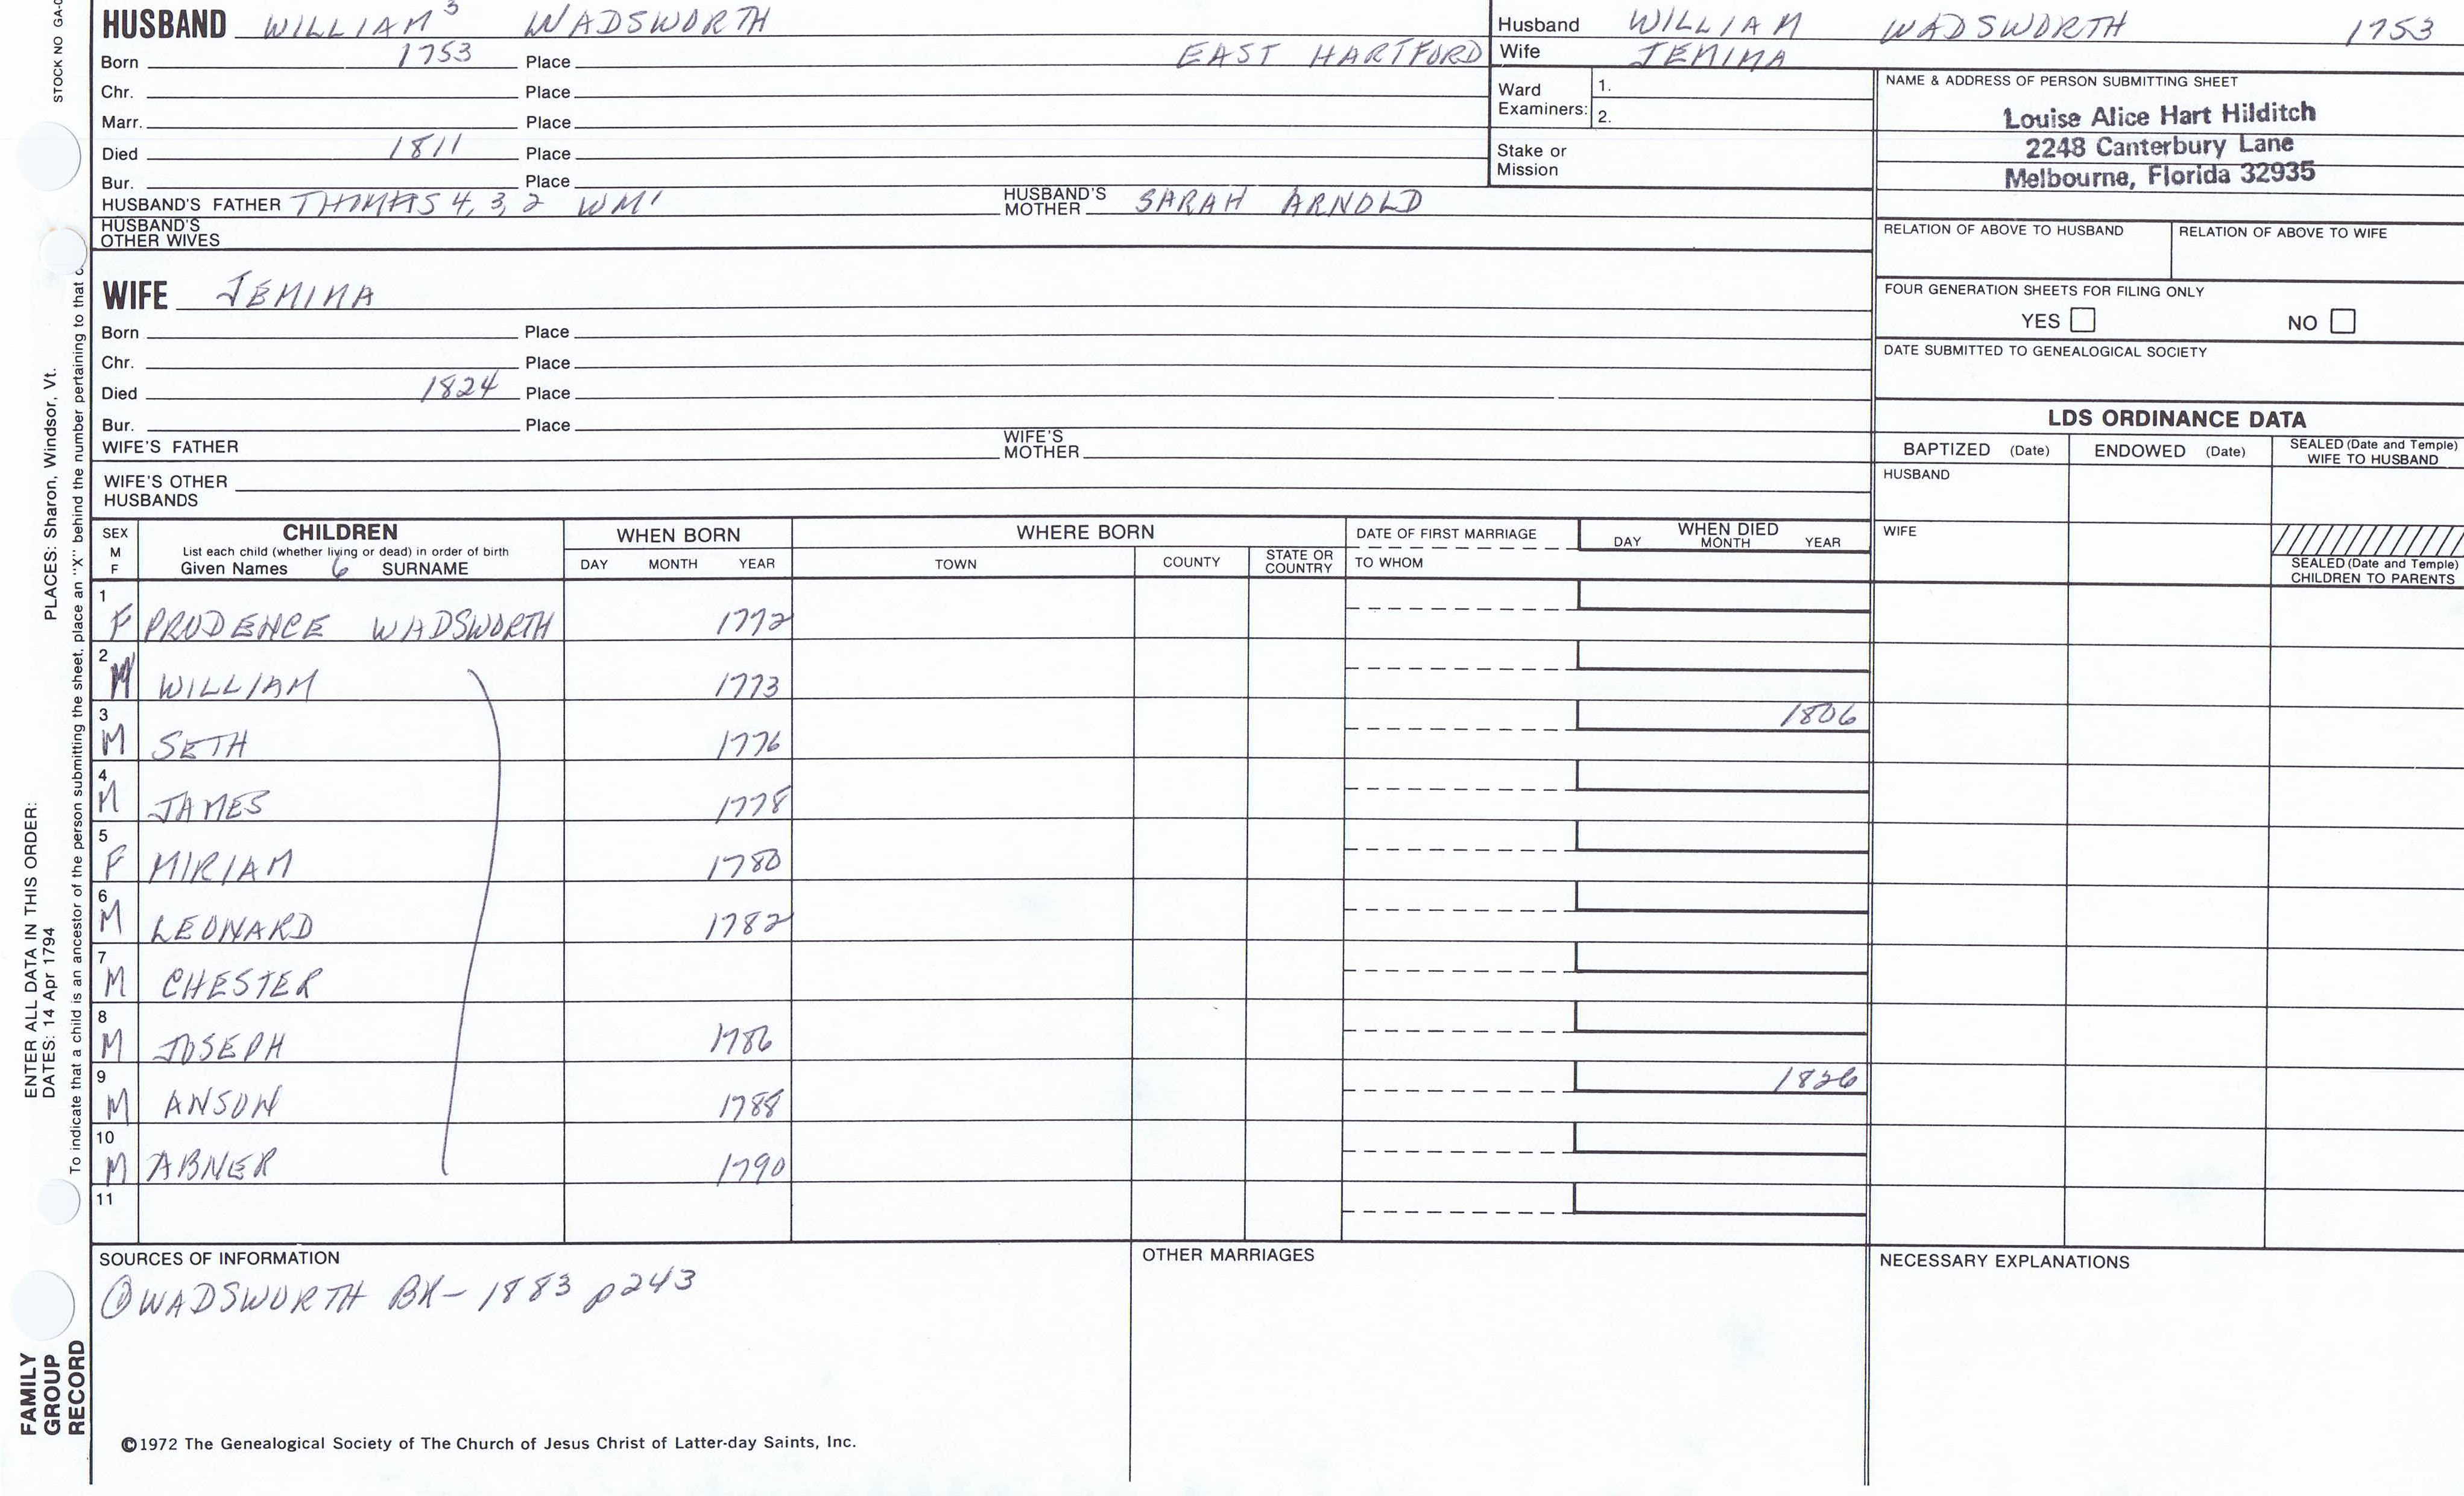 STOCK NO GA-
HUSBAND WILLIAM 5 WADSWORTH
Born 1753 Place EAST HARTFORD
Chr. Place
Marr. Place
Died 1811 Place
Bur. Place
HUSBAND'S FATHER THOMAS 4, 3, 2 WM1 HUSBAND'S MOTHER SARAH ARNOLD
HUSBAND'S OTHER WIVES
Husband WILLIAM WADSWORTH 1753
Wife JEMIMA
Ward Examiners: 1.
2.
Stake or Mission
NAME & ADDRESS OF PERSON SUBMITTING SHEET
Louise Alice Hart Hilditch
2248 Canterbury Lane
Melbourne, Florida 32935
RELATION OF ABOVE TO HUSBAND RELATION OF ABOVE TO WIFE
FOUR GENERATION SHEETS FOR FILING ONLY
YES NO
DATE SUBMITTED TO GENEALOGICAL SOCIETY
WIFE JEMIMA
Born Place
Chr. Place
Died 1824 Place
Bur. Place
WIFE'S FATHER WIFE'S MOTHER
WIFE'S OTHER HUSBANDS
LDS ORDINANCE DATA
BAPTIZED (Date) ENDOWED (Date) SEALED (Date and Temple) WIFE TO HUSBAND
HUSBAND
WIFE
SEALED (Date and Temple) CHILDREN TO PARENTS
SEX M F
CHILDREN
List each child (whether living or dead) in order of birth
Given Names 6 SURNAME
WHEN BORN
DAY MONTH YEAR
WHERE BORN
TOWN COUNTY STATE OR COUNTRY
DATE OF FIRST MARRIAGE
TO WHOM
WHEN DIED
DAY MONTH YEAR
1 F PRUDENCE WADSWORTH 1772
2 M WILLIAM 1773
3 M SETH 1776 1806
4 M JAMES 1778
5 F MIRIAM 1780
6 M LEONARD 1782
7 M CHESTER
8 M JOSEPH 1786
9 M ANSON 1788 1826
10 M ABNER 1790
11
SOURCES OF INFORMATION
① WADSWORTH BK- 1883 p243
OTHER MARRIAGES
NECESSARY EXPLANATIONS
©1972 The Genealogical Society of The Church of Jesus Christ of Latter-day Saints, Inc.
FAMILY GROUP RECORD
ENTER ALL DATA IN THIS ORDER:
DATES: 14 Apr 1794 PLACES: Sharon, Windsor, Vt.
To indicate that a child is an ancestor of the person submitting the sheet, place an "X" behind the number pertaining to that